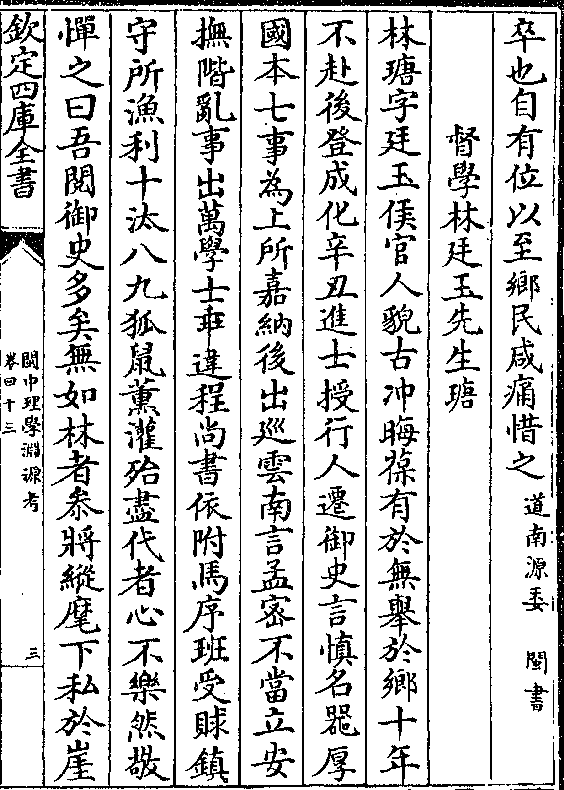 卒也自有位以至鄉民咸痛惜之道南源委　閩書
督學林廷玉先生瑭
林瑭字廷玉侯官人貌古冲晦葆有於無舉於鄉十年
不赴後登成化辛丑進士授行人遷御史言慎名器厚
國本七事為上所嘉納後出廵雲南言孟宻不當立安
撫階亂事出萬學士車違程尚書依附馮序班受賕鎮
守所漁利十汰八九狐鼠薰灌殆盡代者心不樂然敬
憚之曰吾閲御史多矣無如林者叅將縱麾下私於崖
欽定四庫全書
閩中理學淵源考
卷四十三
三